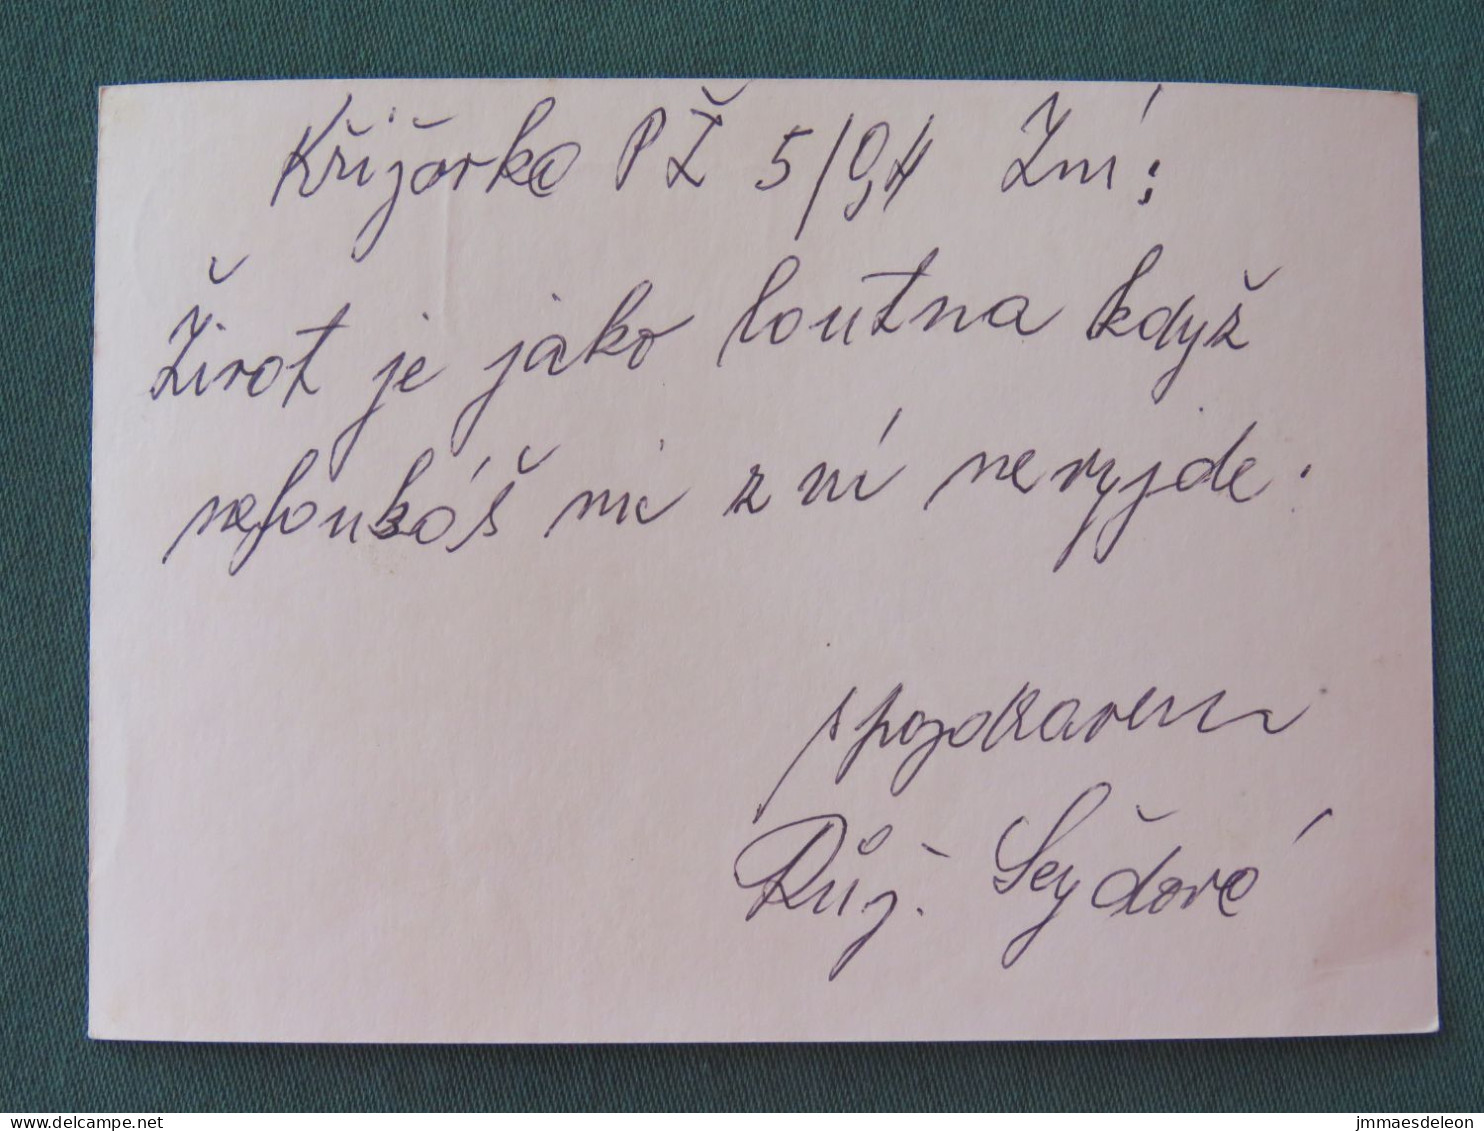 Křižovka PŽ 5/94 Zní:
Život je jako loutna když
nefoukáš nic z ní nevyjde.
s pozdravem
Růž.
delcampe.net
jmmaesdeleon